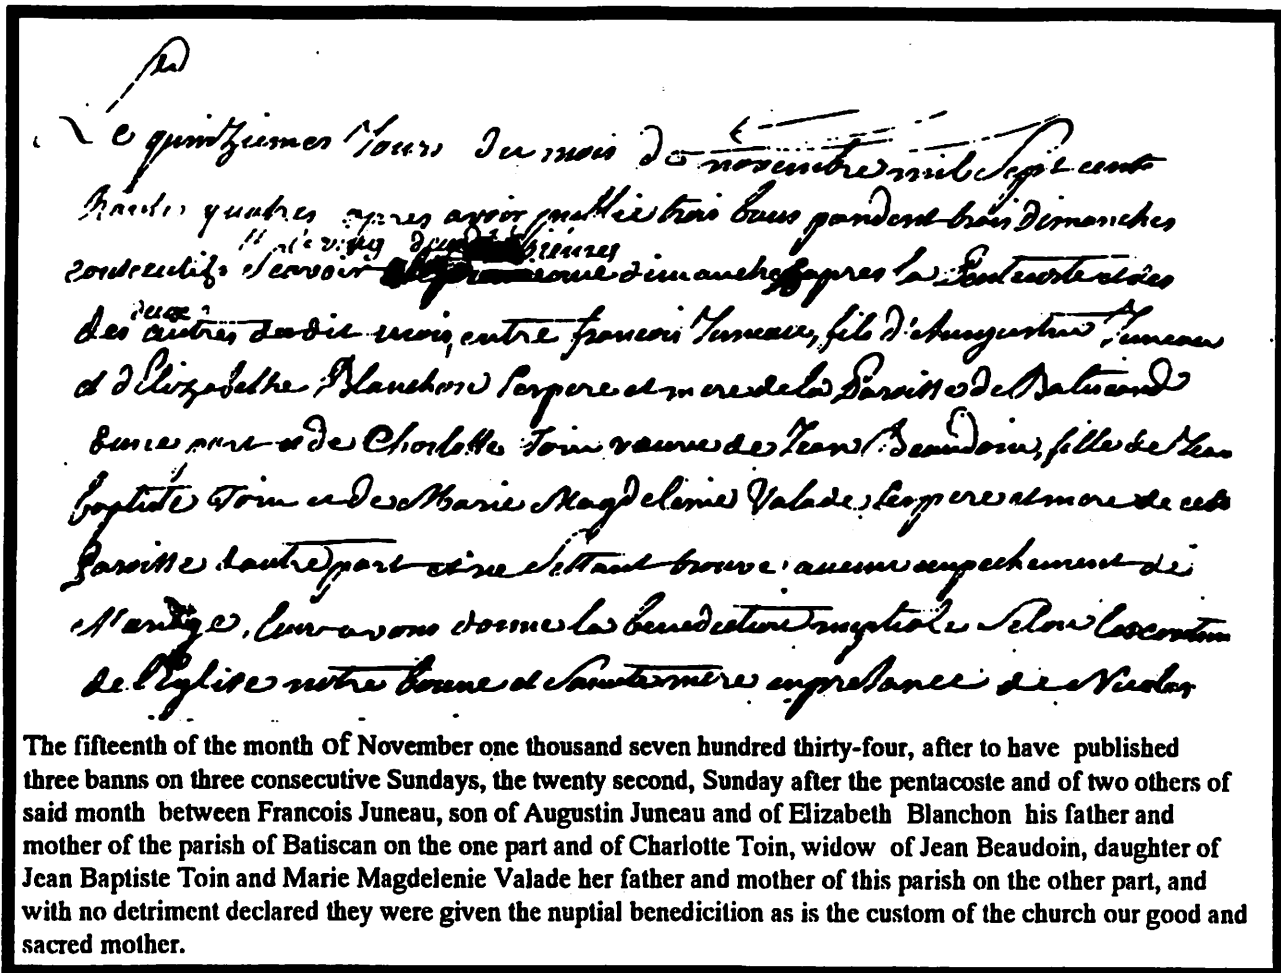 Le quintziemes Jours du mois de novembre mil Sept cents
trante quatres apres avoir publie trois bans pandent trois dimanches
vingt deuxsiemes
consecutifs Scavoir dimanche apres la Pentecoste et des
deux
des autres dudit mois, entre francois Juneau, fils d'Aungustin Juneau
et d'Elizabethe Blanchon Ses pere et mere de la Paroisse de Batiscand
d'une part et de Charlotte Toin veuve de Jean Beaudoin, fille de Jean
baptiste Toin et de Marie Magdelenie Valade, Ses pere et mere de cete
Paroisse d'autre part et ne S'ettant trouve aucun anpechement de
Mariage, leur avons donne la benediction nuptiale Selon les coutum
de l'Eglise notre bonne et Sainte mere en presance de Nicolas
The fifteenth of the month of November one thousand seven hundred thirty-four, after to have published
three banns on three consecutive Sundays, the twenty second, Sunday after the pentacoste and of two others of
said month between Francois Juneau, son of Augustin Juneau and of Elizabeth Blanchon his father and
mother of the parish of Batiscan on the one part and of Charlotte Toin, widow of Jean Beaudoin, daughter of
Jean Baptiste Toin and Marie Magdelenie Valade her father and mother of this parish on the other part, and
with no detriment declared they were given the nuptial benedicition as is the custom of the church our good and
sacred mother.